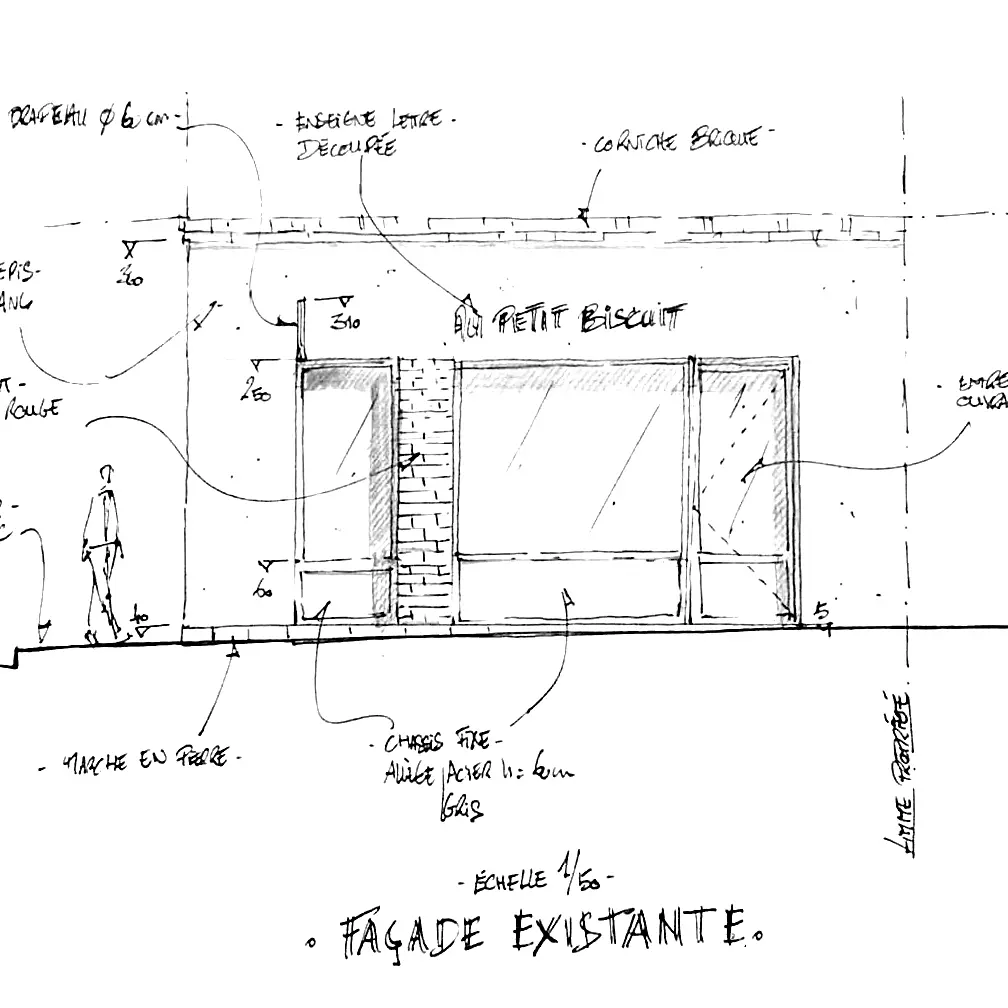 DRAPEAU Ø 60 cm-
- ENSEIGNE LETTRE -
DÉCOUPÉE
- CORNICHE BRIQUE -
310
AU PETIT BISCUIT
250
ROUGE
60
40
5
- MARCHE EN PIERRE -
- CHASSIS FIXE -
ALLÈGE ACIER h= 60cm
GRIS
LIMITE PROPRIÉTÉ.
- ÉCHELLE 1/50 -
. FAÇADE EXISTANTE.